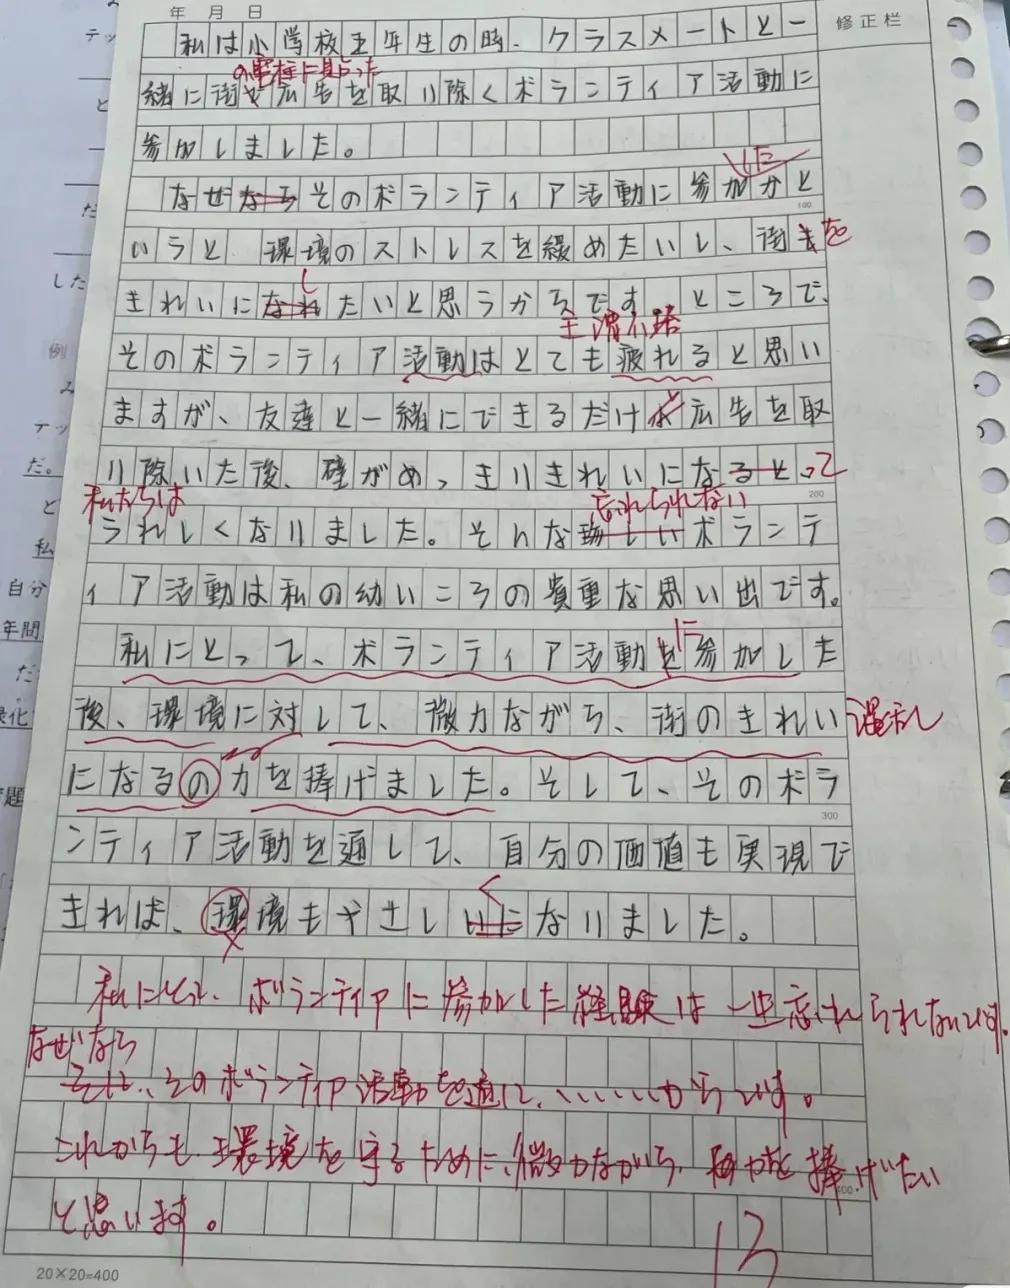 年 月 日
修正栏
私は小学校五年生の時、クラスメートと一
の壁に貼った
緒に街や広告を取り除くボランティア活動に
参加しました。
した
なぜならそのボランティア活動に参加かと
100
いうと 環境のストレスを緩めたいし、街もを
し
きれいになれたいと思うからです。ところで、
主语不括
そのボランティア活動はとても疲れると思い
ますが、友達と一緒にできるだけ広告を取
り除いた後、壁がめっきりきれいになるとって
私たちは
忘れられない
200
うれしくなりました。そんな ボランテ
ィア活動は私の幼いころの貴重な思い出です。
に
私にとって、ボランティア活動を参加した
後、環境に対して、微力ながら、街のきれい
になるの力を捧げました。そして、そのボラ
300
ンティア活動を通して、自分の価値も実現で
く
きれば、環境もやさしいになりました。
私にとって、ボランティアに参加した経験は一生忘れられないです。
なぜなら
そして、そのボランティア活動を通して、……からです。
これからも環境を守るために、微力ながら、 力を捧げたい
400
と思います。
13
20×20=400
テッ
と
だ
した
例
み
テッ
だ。
と
私
自分
年間
だ
緑化
題